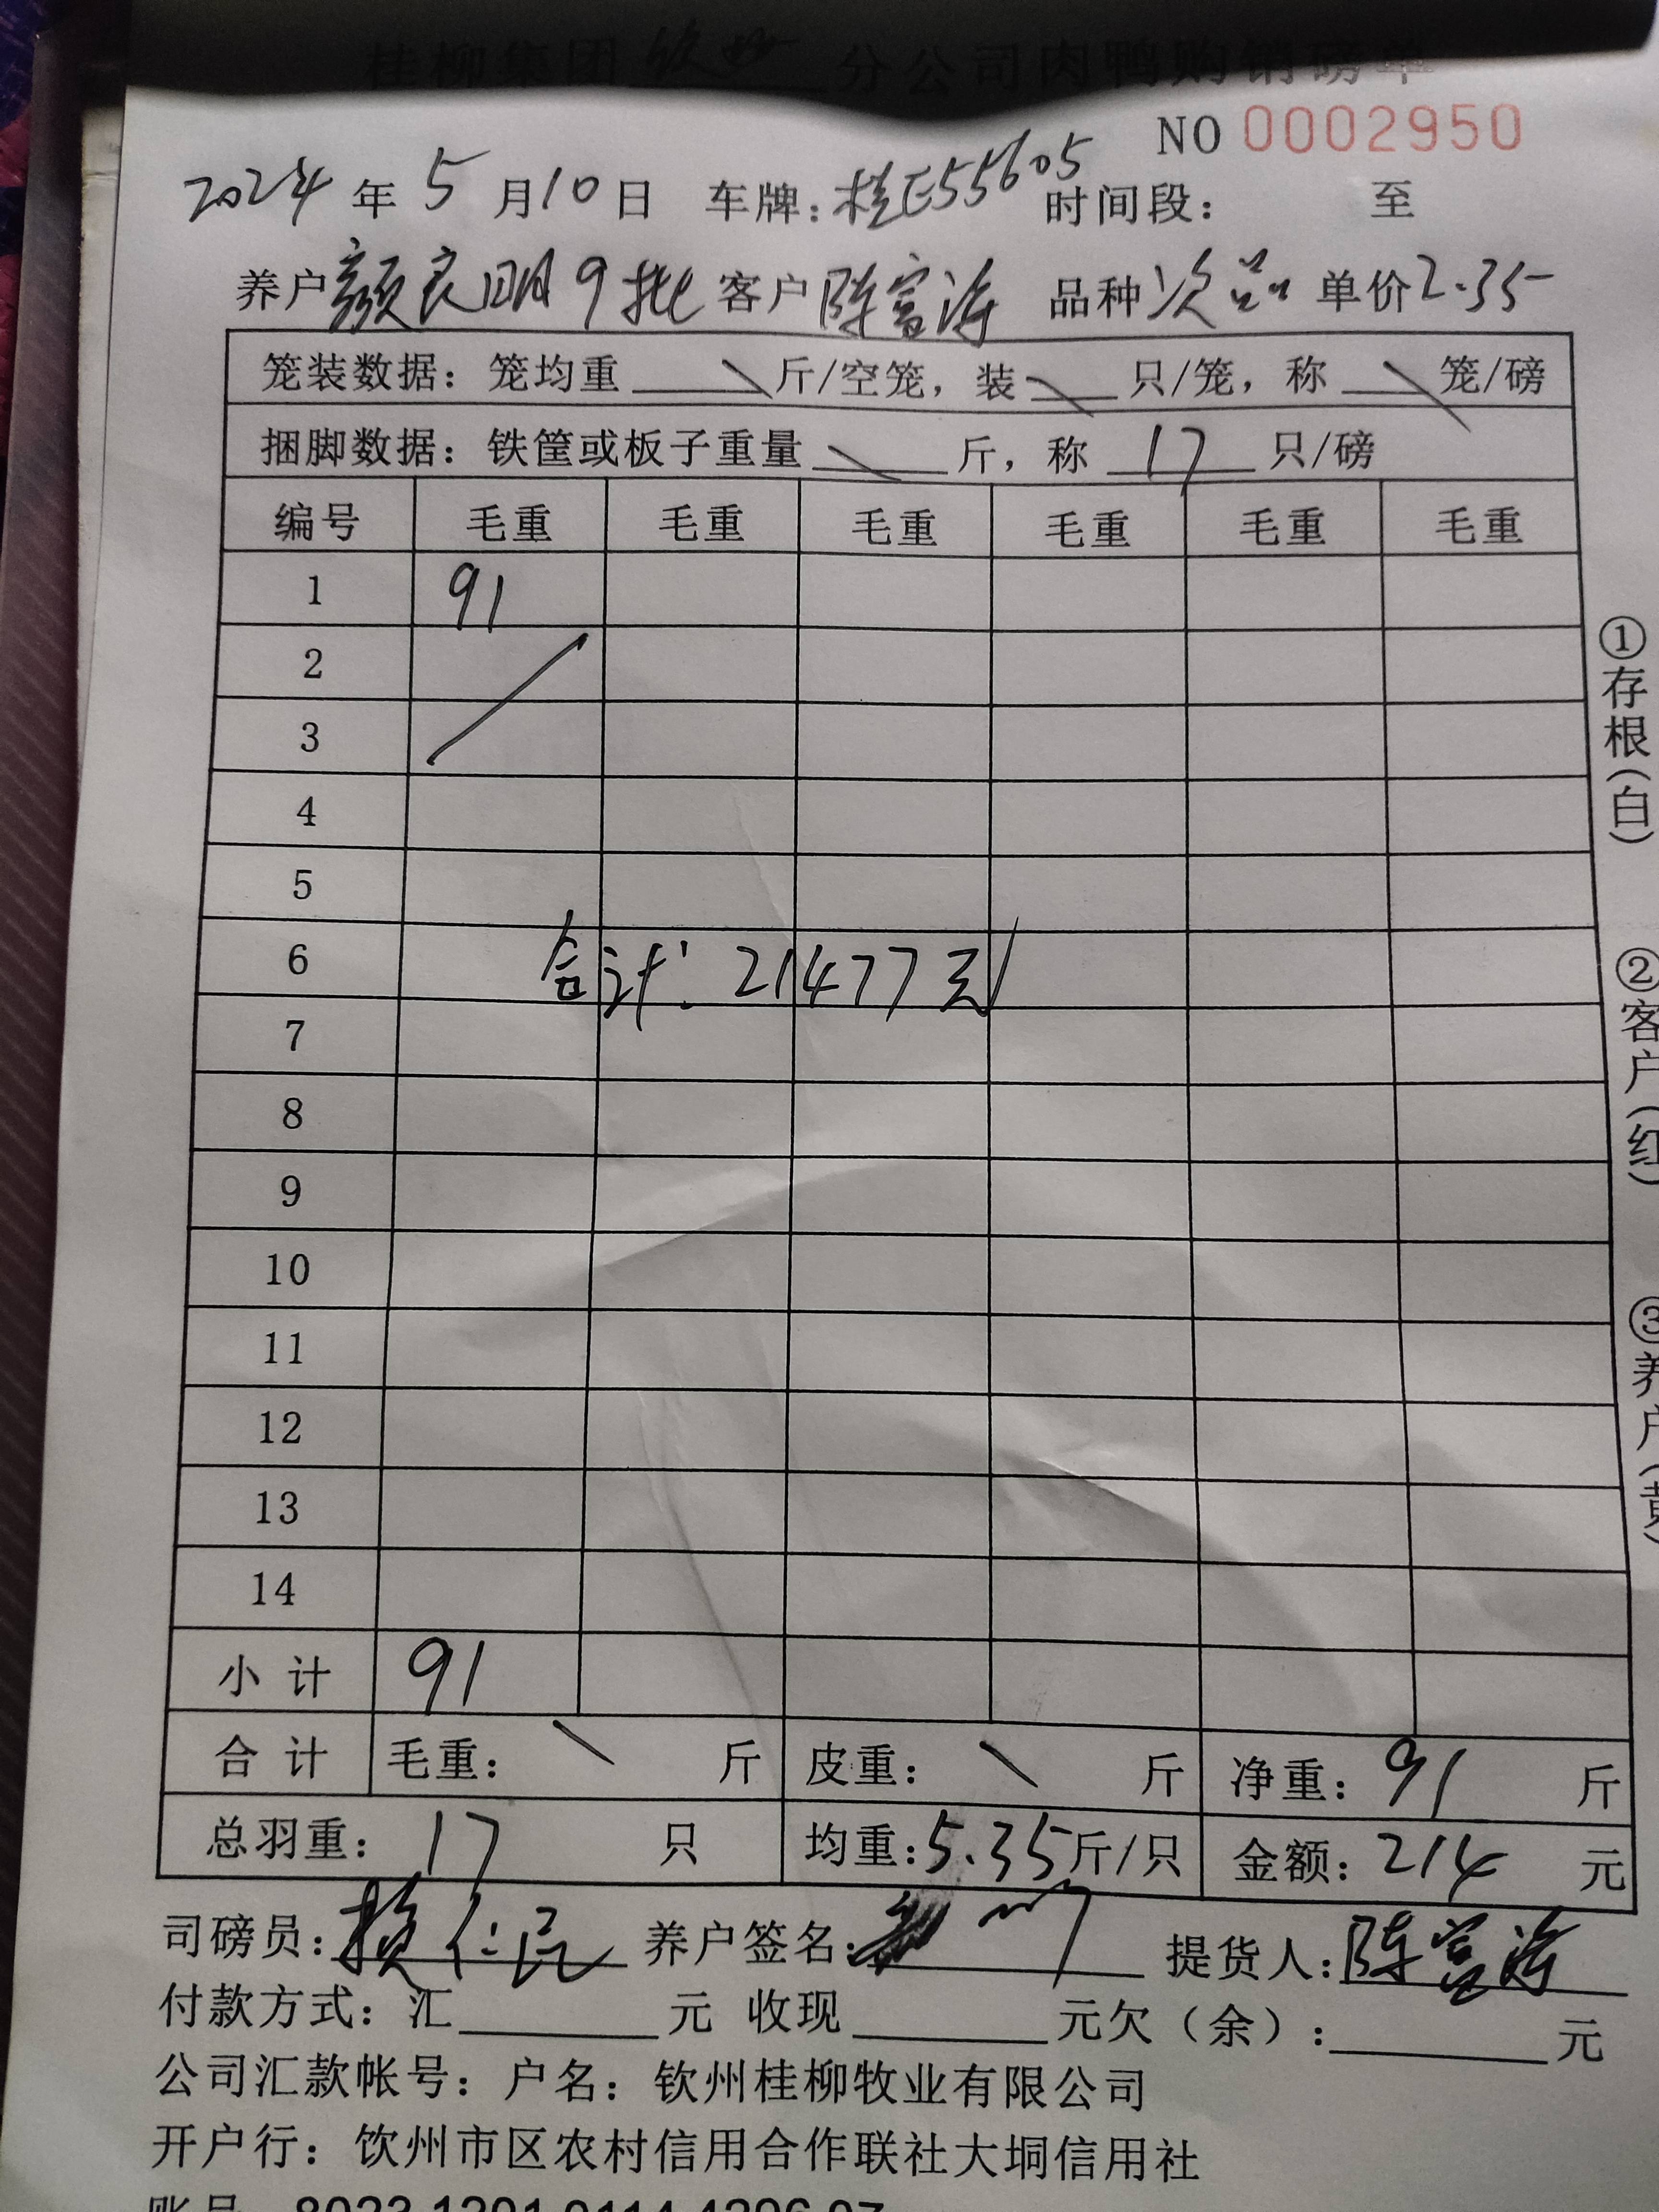 桂柳集团钦州分公司肉鸭购销磅单
NO 0002950
2024年5月10日 车牌:桂E55605 时间段: 至
养户颜良明9批 客户陈富海 品种次品 单价2.35
笼装数据: 笼均重 斤/空笼, 装 只/笼, 称 笼/磅
捆脚数据: 铁筐或板子重量 斤, 称 17 只/磅
编号 毛重 毛重 毛重 毛重 毛重 毛重
1 91
2
3
4
5
6 合计: 21477元
7
8
9
10
11
12
13
14
小计 91
合计 毛重: \ 斤 皮重: \ 斤 净重: 91 斤
总羽重: 17 只 均重:5.35斤/只 金额: 214 元
司磅员: 养户签名: 提货人:陈富海
付款方式: 汇 元 收现 元欠(余): 元
公司汇款帐号: 户名: 钦州桂柳牧业有限公司
开户行: 钦州市区农村信用合作联社大垌信用社
①存根(白)
②客户(红)
③养户(黄)